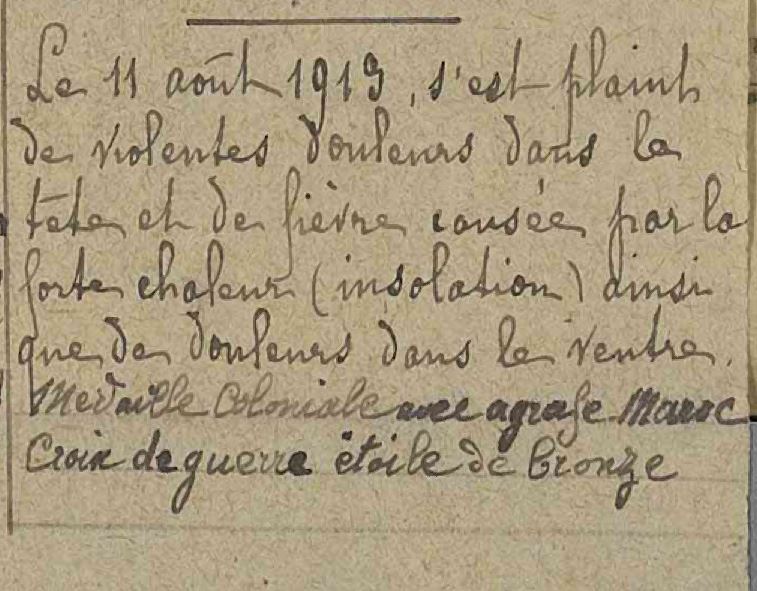 Le 11 août 1913, s'est plaint
de violentes douleurs dans la
tête et de fièvre causée par la
forte chaleur (insolation) ainsi
que de douleurs dans le ventre.
Médaille Coloniale avec agrafe Maroc
Croix de guerre étoile de bronze